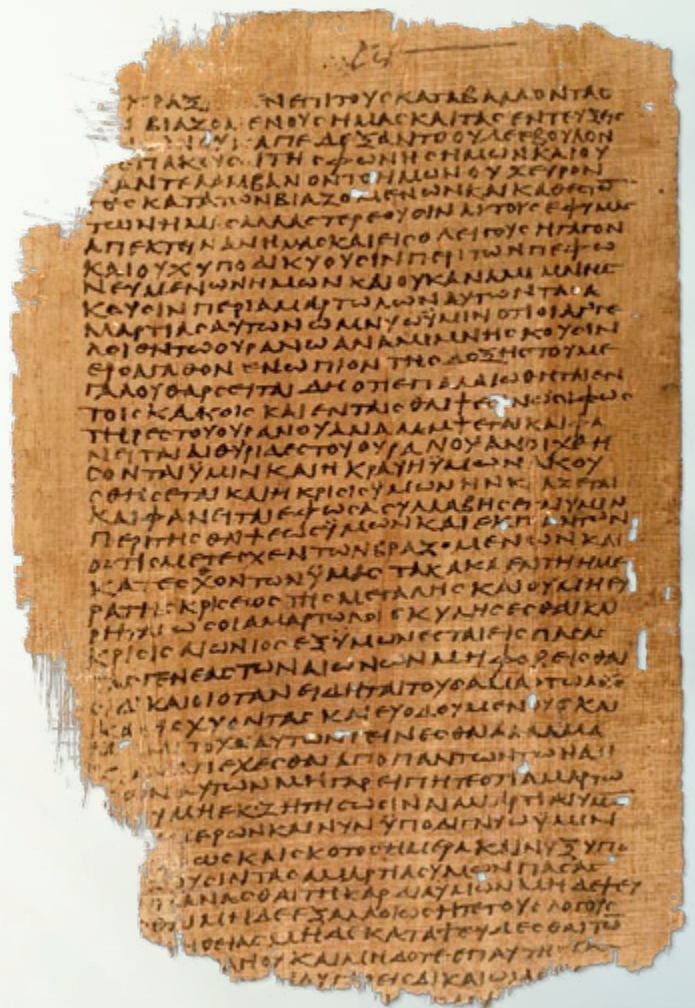 ΒΙΑΖΟΜΕΝΟΥϹΗΜΑϹΚΑΙΤΑϹΕΝΤΕΥΞΕΙϹ
ΑΠΕΔΕΞΑΝΤΟΟΥΔΕΕΒΟΥΛΟΝ
ΕΠΑΚΟΥϹΑΙΤΗϹΦΩΝΗϹΗΜΩΝΚΑΙΟΥ
ΑΝΤΕΛΑΜΒΑΝΟΝΤΟΗΜΩΝΟΥΧΕΥΡΟΝ
ΚΑΤΑΤΩΝΒΙΑΖΟΜΕΝΩΝΚΑΙ
ΤΩΝΗΜΑϹΑΛΛΑϹΤΕΡΕΟΥϹΙΝΑΥΤΟΥϹΕΦΥΜΑϹ
ΑΠΕΚΤΙΝΑΝΗΜΑϹΚΑΙΕΙϹΟΛΕΙΓΟΥϹΗΓΑΓΟΝ
ΚΑΙΟΥΧΥΠΟΔΙΚΥΟΥϹΙΝΠΕΡΙΤΩΝΠΕΦΩ
ΝΕΥΜΕΝΩΝΗΜΩΝΚΑΙΟΥΚΑΝΑΜΙΜΝΗϹ
ΚΟΥϹΙΝΠΕΡΙΑΜΑΡΤΩΛΩΝΑΥΤΩΝΤΑϹΑ
ΜΑΡΤΙΑϹΑΥΤΩΝΩΜΝΥΩΫΜΙΝΟΤΙΟΙΑΓΓΕ
ΛΟΙΕΝΤΩΟΥΡΑΝΩΑΝΑΜΙΜΝΗϹΚΟΥϹΙΝ
ΕΙϹΑΓΑΘΟΝΕΝΩΠΙΟΝΤΗϹΔΟΞΗϹΤΟΥΜΕ
ΓΑΛΟΥΘΑΡϹΕΙΤΑΙΔΗΟΤΙΕΠΑΛΑΙΩΘΗΤΑΙΕΝ
ΤΟΙϹΚΑΚΟΙϹΚΑΙΕΝΤΑΙϹΘΛΙΨΕϹΙΝΩϹΙΦΩϹ
ΤΗΡΕϹΤΟΥΟΥΡΑΝΟΥΑΝΑΛΑΜΨΕΤΑΙΚΑΙΦΑ
ΝΕΙΤΑΙΑΙΘΥΡΙΔΕϹΤΟΥΟΥΡΑΝΟΥΑΝΟΙΧΘΗ
ϹΟΝΤΑΙΫΜΙΝΚΑΙΗΚΡΑΥΓΗΫΜΩΝΑΚΟΥ
ϹΘΗϹΕΤΑΙΚΑΙΗΚΡΙϹΙϹΫΜΩΝΗΝΚΡΑΖΕΤΑΙ
ΚΑΙΦΑΝΕΙΤΑΙΕΦΟϹΑϹΥΛΛΑΒΗϹΕΤΑΙΫΜΙΝ
ΠΕΡΙΤΗϹΘΛΙΨΕΩϹΫΜΩΝΚΑΙΕΚΠΑΝΤΩΝ
ΟϹΤΙϹΜΕΤΕϹΧΕΝΤΩΝΒΙΑΖΟΜΕΝΩΝΚΑΙ
ΚΑΤΕϹΘΟΝΤΩΝΫΜΑϹΤΑΚΑΚΑΕΝΤΗΗΜΕ
ΡΑΤΗϹΚΡΙϹΕΩϹΤΗϹΜΕΓΑΛΗϹΚΑΙΟΥΜΗΕΥ
ΡΗΤΑΙΩϹΟΙΑΜΑΡΤΩΛΟΙϹΚΥΛΗϹΕϹΘΑΙΚΑΙ
ΚΡΙϹΙϹΑΙΩΝΙΟϹΕΞΫΜΩΝΕϹΤΑΙΕΙϹΠΑϹΑϹ
ΤΑϹΓΕΝΕΑϹΤΩΝΑΙΩΝΩΝΜΗΦΟΒΕΙϹΘΑΙ
ΟΙΔΙΚΑΙΟΙΟΤΑΝΕΙΔΗΤΑΙΤΟΥϹΑΜΑΡΤΩΛΟΥϹ
ΚΑΤΙϹΧΥΟΝΤΑϹΚΑΙΕΥΟΔΟΥΜΕΝΟΥϹΚΑΙ
ΑΥΤΩΝΓΕΙΝΕϹΘΑΙΑΛΛΑΜΑ
ΑΠΕΧΕϹΘΑΙΑΠΟΠΑΝΤΩΝΤΩΝΑΔΙ
ΑΥΤΩΝΜΗΓΑΡΕΙΠΗΤΕΟΤΙΑΜΑΡΤΩ
ΜΗΕΚΖΗΤΗϹΩϹΙΝΝΑΜΑΡΤΙΑΙΫΜΩ
ΗΜΕΡΩΝΚΑΙΝΥΝΫΠΟΔΙΓΝΥΩΫΜΙΝ
ΦΩϹΚΑΙϹΚΟΤΟϹΗΜΕΡΑΚΑΙΝΥΞΥΠΟ
ΟΥϹΙΝΤΑϹΑΜΑΡΤΙΑϹΥΜΩΝΠΑϹΑϹ
ΠΛΑΝΑϹΘΑΙΤΗΚΑΡΔΙΑΥΜΩΝΜΗΔΕΨΕΥ
ΜΗΔΕΕΞΑΛΛΟΙΩϹΗΤΕΤΟΥϹΛΟΓΟΥϹ
ΑΛΗΘΕΙΑϹΜΗΔΕΚΑΤΑΨΕΥΔΕϹΘΑΙΤΩ
ΚΑΙΜΗΔΟΤΕΕΠΑ